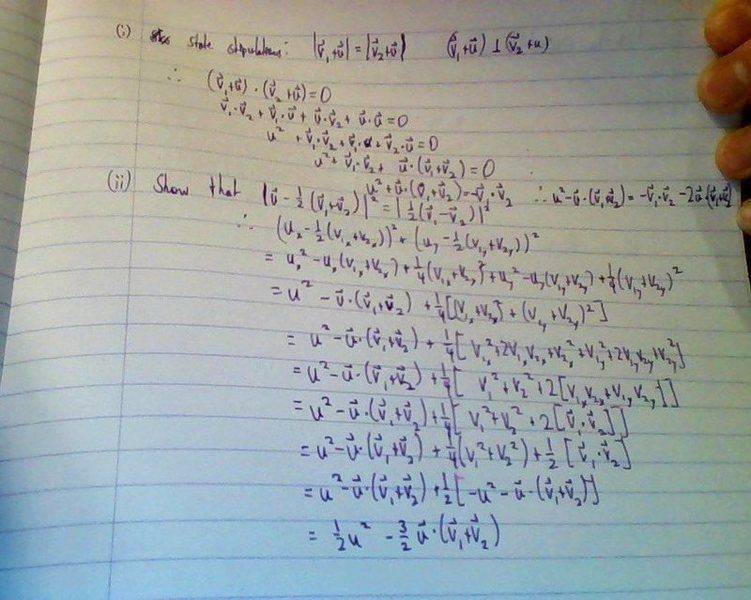 (i) state stipulations: |v⃗₁+u⃗| = |v⃗₂+u⃗| (v⃗₁+u⃗) ⊥ (v⃗₂+u)
∴ (v⃗₁+u⃗)·(v⃗₂+u⃗)=0
v⃗₁·v⃗₂ + v⃗₁·u⃗ + u⃗·v⃗₂ + u⃗·u⃗ = 0
u² + v⃗₁·v⃗₂ + v⃗₁·u + v⃗₂·u⃗ = 0
u² + v⃗₁·v⃗₂ + u⃗·(v⃗₁+v⃗₂) = 0
u² + u⃗·(v⃗₁+v⃗₂) = -v⃗₁·v⃗₂ ∴ u² - u⃗·(v⃗₁+v⃗₂) = -v⃗₁·v⃗₂ - 2u⃗·(v⃗₁+v⃗₂)
(ii) Show that |u⃗ - ½(v⃗₁+v⃗₂)|² = |½(v⃗₁-v⃗₂)|²
∴ (uₓ - ½(v₁ₓ+v₂ₓ))² + (u_y - ½(v₁_y+v₂_y))²
= uₓ² - uₓ(v₁ₓ+v₂ₓ) + ¼(v₁ₓ+v₂ₓ)² + u_y² - u_y(v₁_y+v₂_y) + ¼(v₁_y+v₂_y)²
= u² - u⃗·(v⃗₁+v⃗₂) + ¼[(v₁ₓ+v₂ₓ)² + (v₁_y+v₂_y)²]
= u² - u⃗·(v⃗₁+v⃗₂) + ¼[v₁ₓ²+2v₁ₓv₂ₓ+v₂ₓ²+v₁_y²+2v₁_yv₂_y+v₂_y²]
= u² - u⃗·(v⃗₁+v⃗₂) + ¼[v₁²+v₂²+2[v₁ₓv₂ₓ+v₁_yv₂_y]]
= u² - u⃗·(v⃗₁+v⃗₂) + ¼[v₁²+v₂²+2[v⃗₁·v⃗₂]]
= u² - u⃗·(v⃗₁+v⃗₂) + ¼(v₁²+v₂²) + ½[v⃗₁·v⃗₂]
= u² - u⃗·(v⃗₁+v⃗₂) + ½[-u² - u⃗·(v⃗₁+v⃗₂)]
= ½u² - 3/2 u⃗·(v⃗₁+v⃗₂)